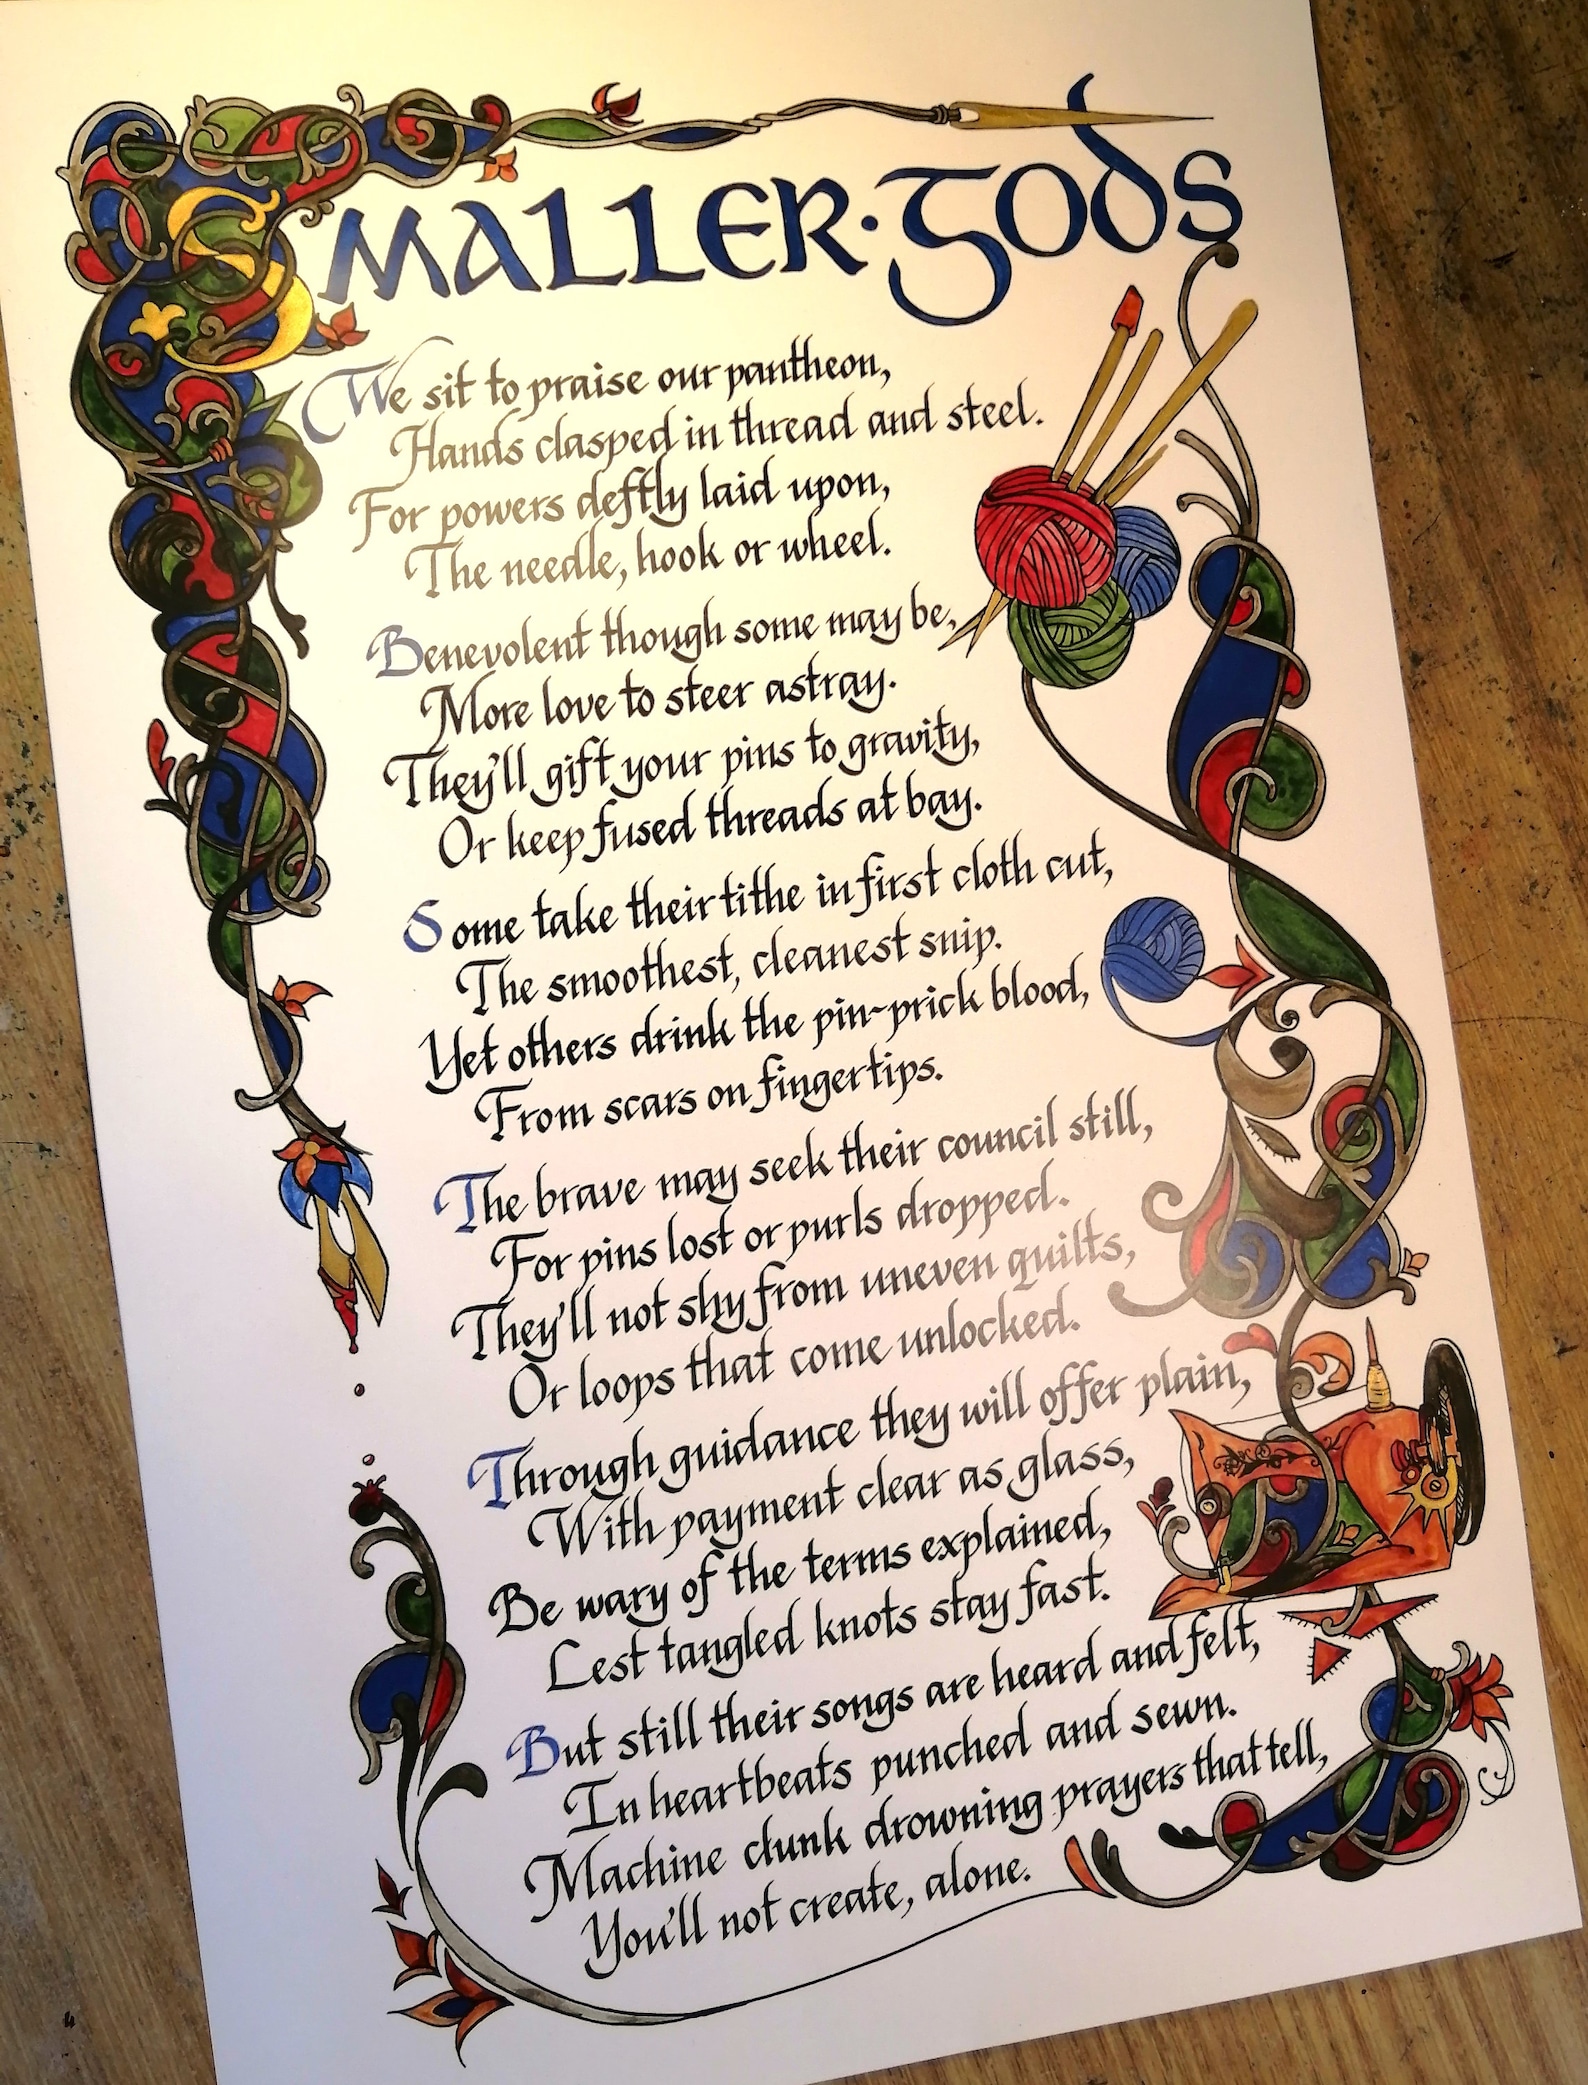 SMALLER·GODS
We sit to praise our pantheon,
Hands clasped in thread and steel.
For powers deftly laid upon,
The needle, hook or wheel.
Benevolent though some may be,
More love to steer astray.
They'll gift your pins to gravity,
Or keep fused threads at bay.
Some take their tithe in first cloth cut,
The smoothest, cleanest snip.
Yet others drink the pin-prick blood,
From scars on fingertips.
The brave may seek their council still,
For pins lost or purls dropped.
They'll not shy from uneven quilts,
Or loops that come unlocked.
Through guidance they will offer plain,
With payment clear as glass,
Be wary of the terms explained,
Lest tangled knots stay fast.
But still their songs are heard and felt,
In heartbeats punched and sewn.
Machine clunk drowning prayers that tell,
You'll not create, alone.